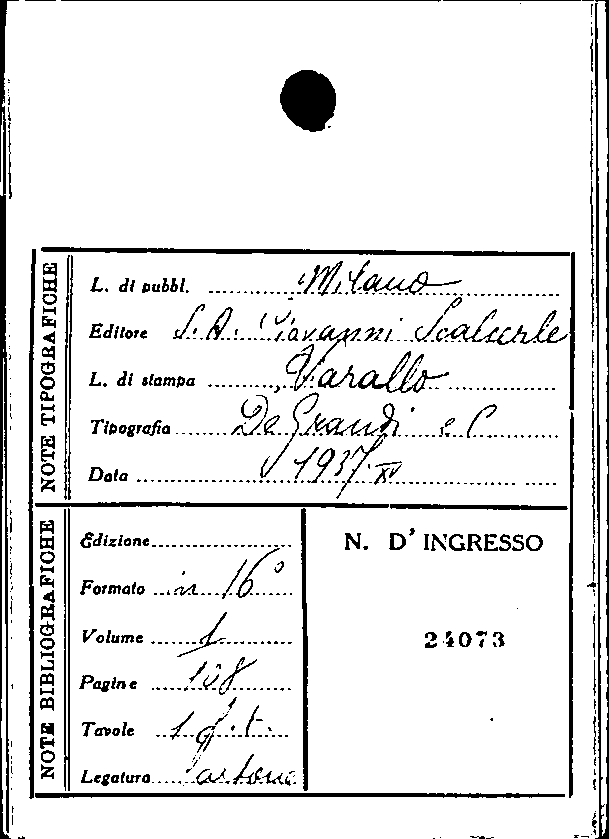 NOTE TIPOGRAFICHE
L. di pubbl. Milano
Editore S. A. Giovanni Scalcerle
L. di stampa Varallo
Tipografia De Grandi e C
Data 1937. XV
NOTE BIBLIOGRAFICHE
Edizione
Formato in 16°
Volume 1
Pagine 108
Tavole 1 f. t.
Legatura Cartone
N. D'INGRESSO
24073